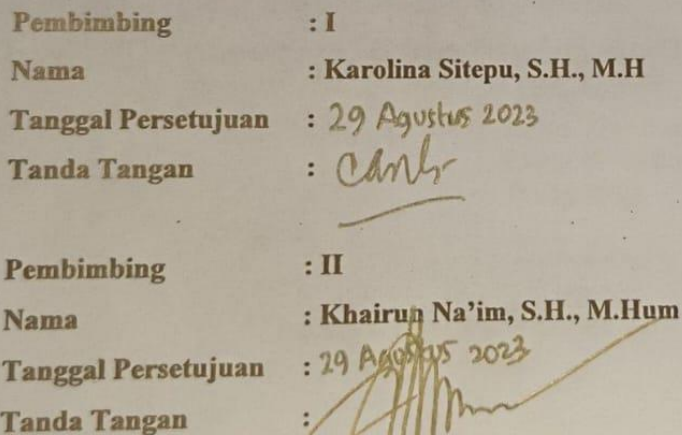 Pembimbing : I
Nama : Karolina Sitepu, S.H., M.H
Tanggal Persetujuan : 29 Agustus 2023
Tanda Tangan :
Pembimbing : II
Nama : Khairun Na'im, S.H., M.Hum
Tanggal Persetujuan : 29 Agustus 2023
Tanda Tangan :